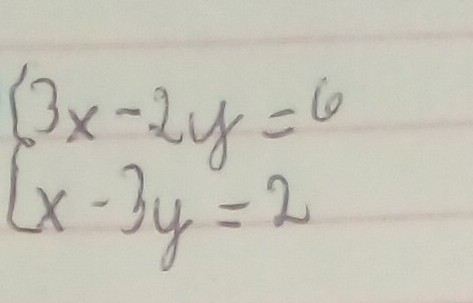 3x - 2y = 6
x - 3y = 2